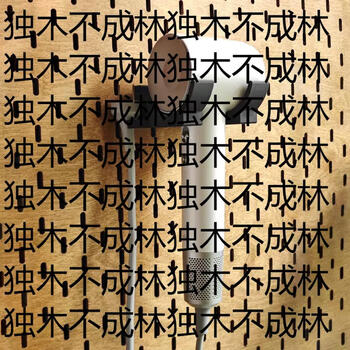 独木不成林独木不成林
独木不成林独木不成林
独木不成林独木不成林
独木不成林独木不成林
独木不成林独木不成林
独木不成林独木不成林
独木不成林独木不成林
独木不成林独木不成林